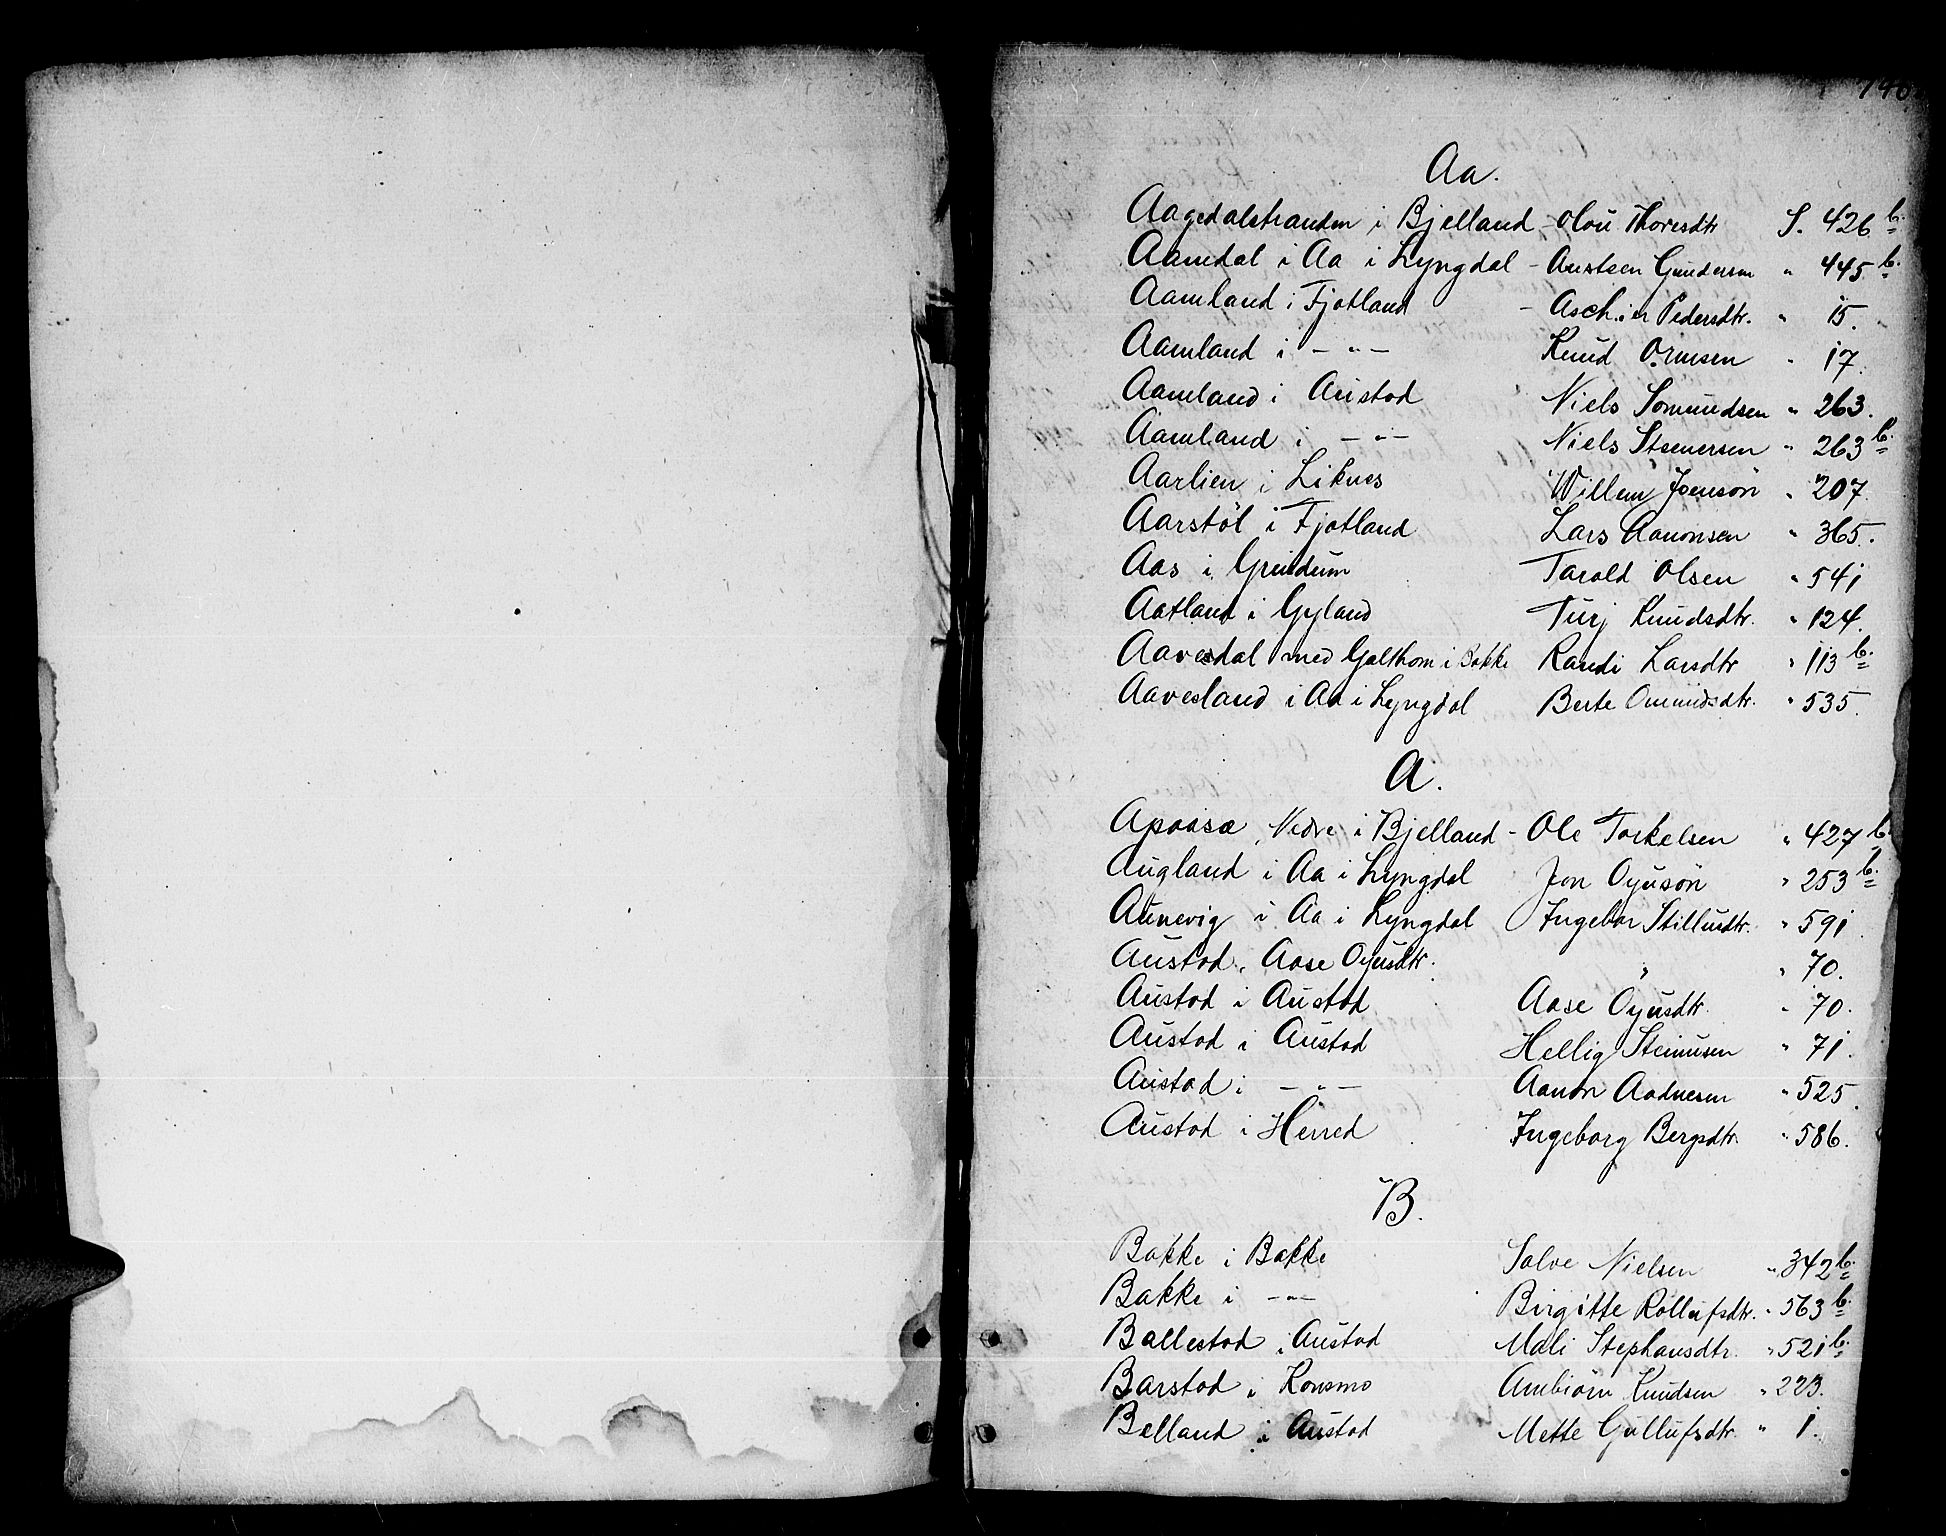 Aa.
Aagedalstranden i Bjelland - Olou Thoresdtr S. 426 b.
Aamdal i Aa i Lyngdal - Austsen Gundersen " 445 b.
Aamland i Fjotland - Pedersdtr. " 15.
Aamland i - " - Knud Ormsen " 17.
Aamland i Austad Niels Tomundsen " 263.
Aamland i - " - Niels Stenersen " 263 b.
Aarlien i Liknes Willem Joensön " 207.
Aarstöl i Fjotland Lars Aanonsen " 365.
Aas i Grindum Tarald Olsen " 541
Aatland i Gyland Turj Knudsdtr. " 124.
Aavesdal med Galthom i Bakke Randi Larsdtr " 113 b.
Aavesland i Aa i Lyngdal Berte Omundsdtr. " 535.
A.
Apaasæ, Nedre i Bjelland - Ole Torkelsen " 427 b.
Augland i Aa i Lyngdal Jon Oyusön " 253 b.
Aunevig i Aa i Lyngdal Ingebor " 591.
Austad, Aase Oyusdtr. " " 70.
Austad i Austad Aase Oyusdtr. " 70.
Austad i Austad Hellig Steinusen " 71.
Austad i - " - Aanon Aadnesen " 525.
Austad i Herred Ingeborg Bergsdtr. " 586.
B.
Bakke i Bakke Salve Nielsen " 342 b.
Bakke i - " - Birgitte Rollufsdtr. " 563 b.
Ballestad i Austad Mali Stephansdtr. " 521 b.
Barstad i Konsmo Ambiörn Knudsen " 223.
Belland i Austad Mette Gullufsdtr. " 1.